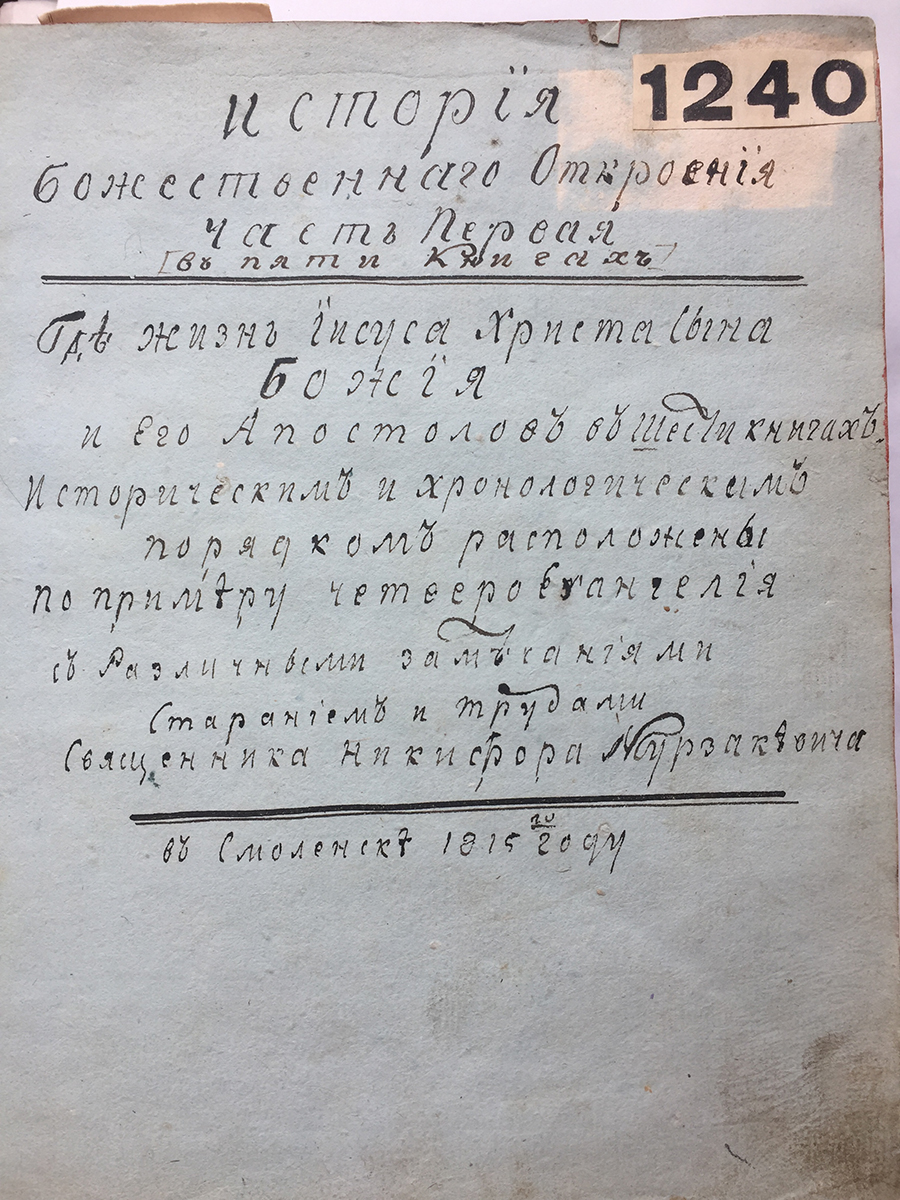 1240
Исторїя
Божественнаго Откровенїя
Часть Первая
[въ пяти Книгахъ]
Гдѣ жизнь Їисуса Христа Сына
Божїя
и Его Апостоловъ въ Шести книгахъ.
Историческимъ и хронологическимъ
порядкомъ расположены
По примѣру четвероевангелїя
съ Различными замѣчанїями
Старанїемъ и трудами
Священника Никифора Мурзакѣвича
въ Смоленскѣ 1815 го году